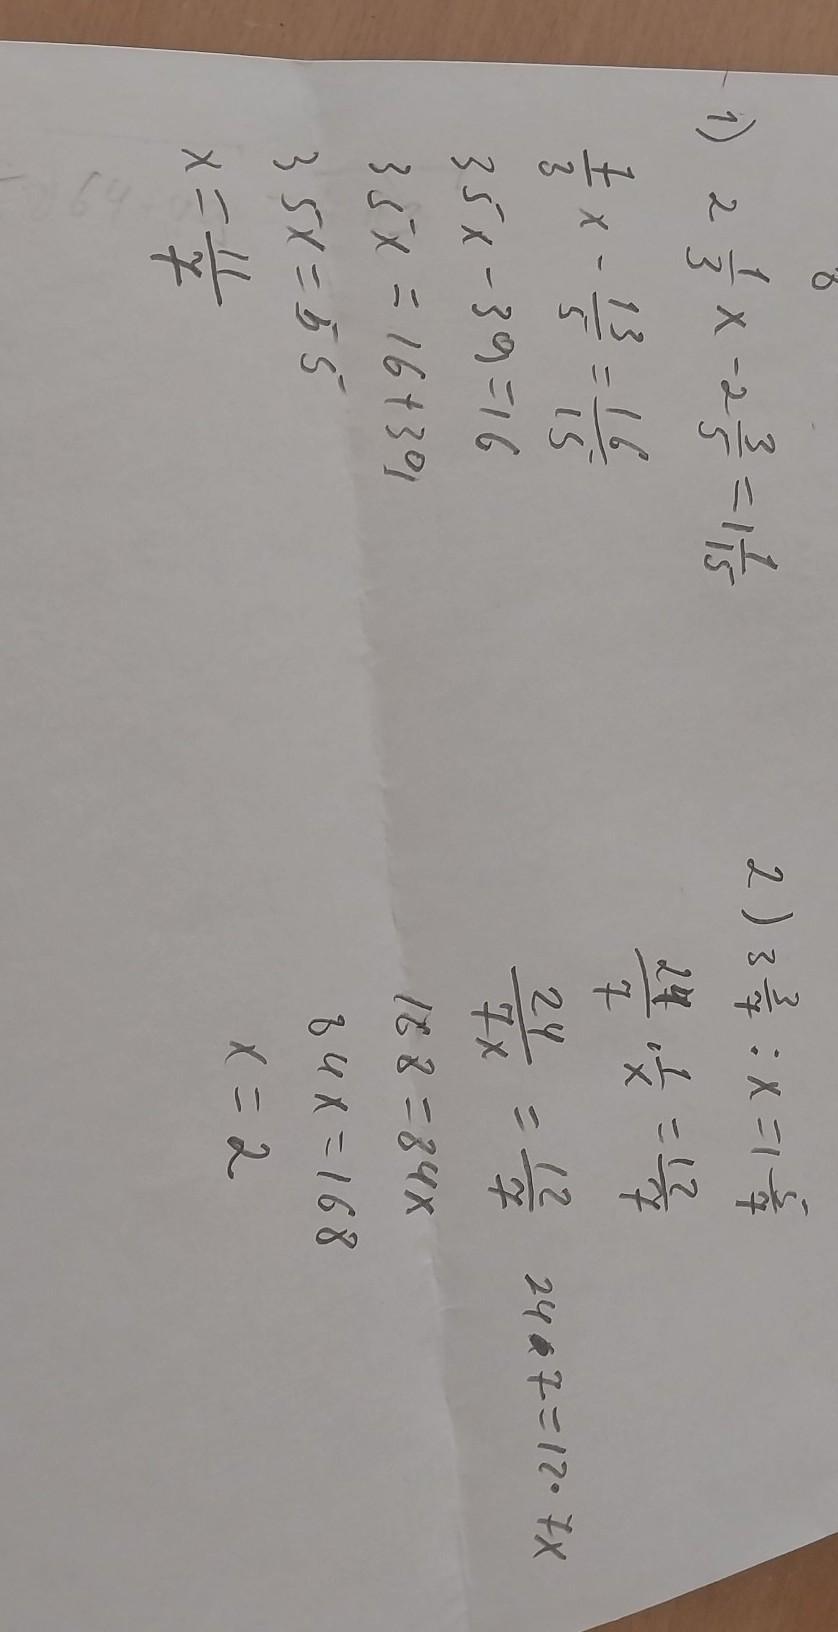 8
1) 2 1/3 x - 2 3/5 = 1 1/15
7/3 x - 13/5 = 16/15
35x - 39 = 16
35x = 16 + 39
35x = 55
x = 11/7
2) 3 3/7 : x = 1 5/7
24/7 · 1/x = 12/7
24/7x = 12/7 24 · 7 = 12 · 7x
168 = 84x
84x = 168
x = 2